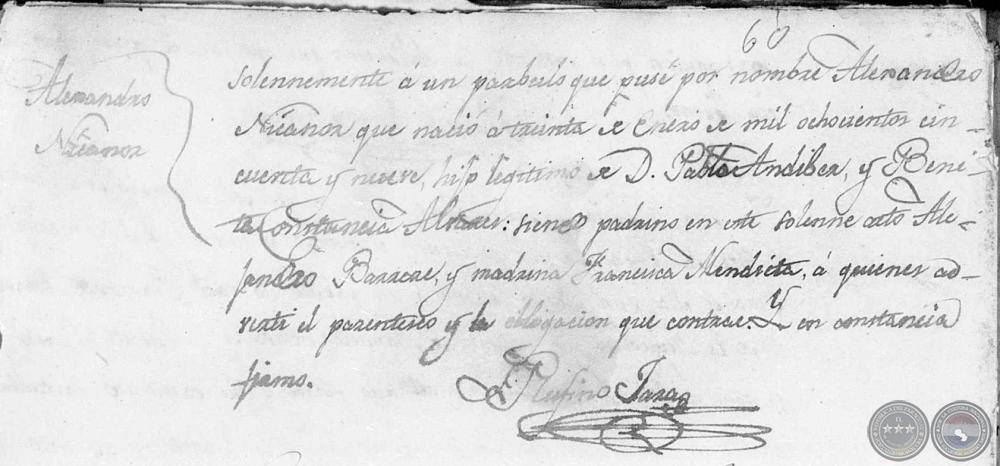 60
Alexandro
Nicanor
solennemente á un parbulo que puse por nombre Alexandro
Nicanor que nació á treinta de Enero de mil ochocientos cin-
cuenta y nueve, hijo legitimo de D. Pablo y Beni-
ta Constancia : siendo padrino en este solenne acto Ale-
jandro y madrina Francisca Mendieta, á quienes ad-
verti el parentesco y la obligacion que contrae. Y en constancia
firmo.
Rufino Jara